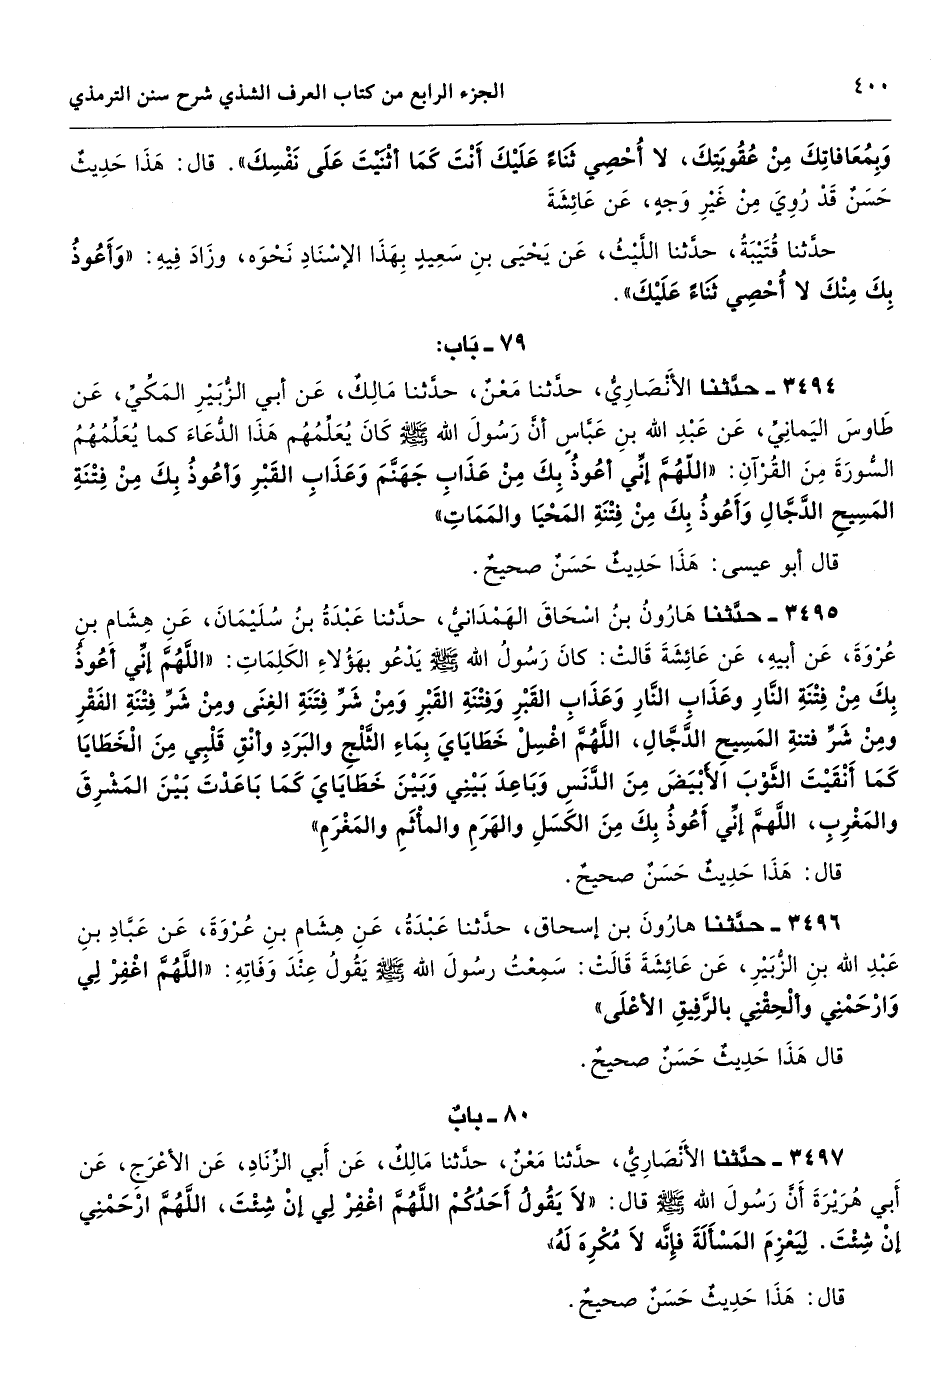 ٤٠٠
الجزء الرابع من كتاب العرف الشذي شرح سنن الترمذي
وَبِمُعَافاتِكَ مِنْ عُقُوبَتِكَ، لا أُحْصِي ثَنَاءً عَلَيْكَ أَنْتَ كَمَا أثْنَيْتَ عَلَى نَفْسِكَ». قال: هَذَا حَدِيثٌ
حَسَنٌ قَدْ رُوِيَ مِنْ غَيْرِ وَجهٍ، عَن عَائِشَةَ
حدَّثنا قُتَيْبَةُ، حدَّثنا اللَّيْثُ، عَن يَحْيَى بنِ سَعِيدٍ بِهَذَا الإسْنَادِ نَحْوَه، وزَادَ فِيهِ: «وَأَعُوذُ
بِكَ مِنْكَ لا أُحْصِي ثَنَاءً عَلَيْكَ».
٧٩ ـ بَاب:
٣٤٩٤ ـ حدَّثنا الأَنْصَارِيُّ، حدَّثنا مَعْنٌ، حدَّثنا مَالِكٌ، عَن أبي الزُّبَيْرِ المَكِّيِّ، عَن
طَاوسَ اليَمانِيِّ، عَن عَبْدِ الله بنِ عَبَّاسٍ أنَّ رَسُولَ الله ﷺ كَانَ يُعَلِّمُهُم هَذَا الدُّعَاءَ كما يُعَلِّمُهُمُ
السُّورَةَ مِنَ القُرْآنِ: «اللّهُمَّ إنِّي أعُوذُ بِكَ مِنْ عَذَابِ جَهَنَّمَ وَعَذَابِ القَبْرِ وَأعُوذُ بِكَ مِن فِتْنَةِ
المَسِيحِ الدَّجَّالِ وَأَعُوذُ بِكَ مِنْ فِتْنَةِ المَحْيَا والمَمَاتِ»
قال أبو عيسى: هَذَا حَدِيثٌ حَسَنٌ صحيحٌ.
٣٤٩٥ ـ حدَّثنا هَارُونُ بنُ اسْحَاقَ الهَمْدَانيُّ، حدَّثنا عَبْدَةُ بنُ سُلَيْمَانَ، عَنِ هِشَامِ بنِ
عُرْوَةَ، عَن أبيهِ، عَن عَائِشَةَ قَالتْ: كانَ رَسُولُ الله ﷺ يَدْعُو بِهَؤُلاءِ الكَلِمَاتِ: «اللَّهُمَّ إنِّي أعُوذُ
بِكَ مِنْ فِتْنَةِ النَّارِ وعَذَابِ النَّارِ وَعَذَابِ القَبْرِ وَفِتْنَةِ القَبْرِ وَمِنْ شَرِّ فِتَنَةِ الغِنَى ومِنْ شَرِّ فِتْنَةِ الفَقْرِ
ومِنْ شَرِّ فتنةِ المَسِيحِ الدَّجَّالِ، اللَّهُمَّ اغْسِلْ خَطَايَايَ بِمَاءِ الثَّلْجِ والبَرَدِ وأنْقِ قَلْبِي مِنَ الْخَطَايَا
كَمَا أَنْقَيْتَ الثَّوْبَ الأَبْيَضَ مِنَ الدَّنَسِ وَبَاعِدَ بَيْنِي وَبَيْنَ خَطَايَايَ كَمَا بَاعَدْتَ بَيْنَ المَشْرِقِ
والمَغْرِبِ، اللَّهمَّ إنِّي أَعُوذُ بِكَ مِنَ الكَسَلِ والهَرَمِ والمأثَمِ والمَغْرَمِ»
قال: هَذَا حَدِيثٌ حَسَنٌ صحيحٌ.
٣٤٩٦ ـ حدَّثنا هارُونَ بن إسحاق، حدَّثنا عَبْدَةُ، عَنِ هِشَامِ بنِ عُرْوَةَ، عَن عَبَّادِ بنِ
عَبْدِ الله بنِ الزُّبَيْرِ، عَن عَائِشَةَ قَالَتْ: سَمِعْتُ رسُولَ الله ﷺ يَقُولُ عِنْدَ وَفَاتِهِ: «اللَّهُمَّ اغْفِرْ لِي
وَارْحَمْنِي وألْحِقْنِي بالرَّفِيقِ الأعْلَى»
قال هَذَا حَدِيثٌ حَسَنٌ صحيحٌ.
٨٠ ـ بابٌ
٣٤٩٧ ـ حدَّثنا الأَنْصَارِيُّ، حدَّثنا مَعْنٌ، حدَّثنا مَالِكٌ، عَن أَبي الزِّنَادِ، عَن الأَعْرَجِ، عَن
أَبي هُرَيْرَةَ أَنَّ رَسُولَ الله ﷺ قال: «لاَ يَقُولُ أَحَدُكُمْ اللَّهُمَّ اغْفِرْ لِي إنْ شِئْتَ، اللَّهُمَّ ارْحَمْنِي
إنْ شِئْتَ. لِيَعْزِمَ المَسْأَلَةَ فإنَّه لاَ مُكْرِهَ لَهُ»
قال: هَذَا حَدِيثٌ حَسَنٌ صحيحٌ.